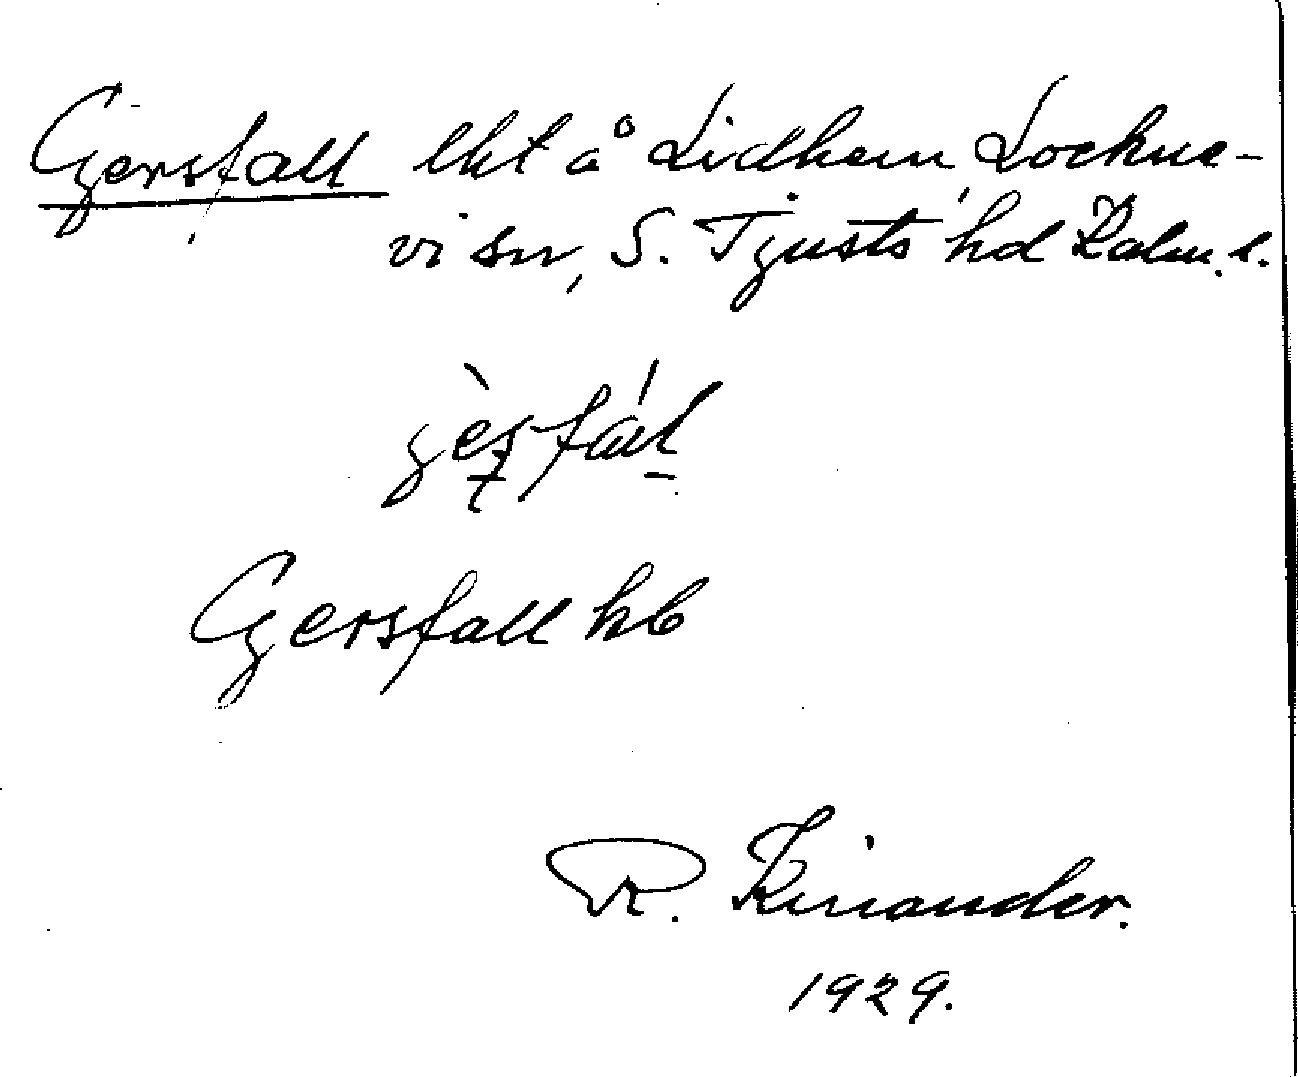 Gersfall lht å Lidhem Lockne-
vi sn, S. Tjusts hd Kalm. l.
Gersfall hb
R. Kinander.
1929.